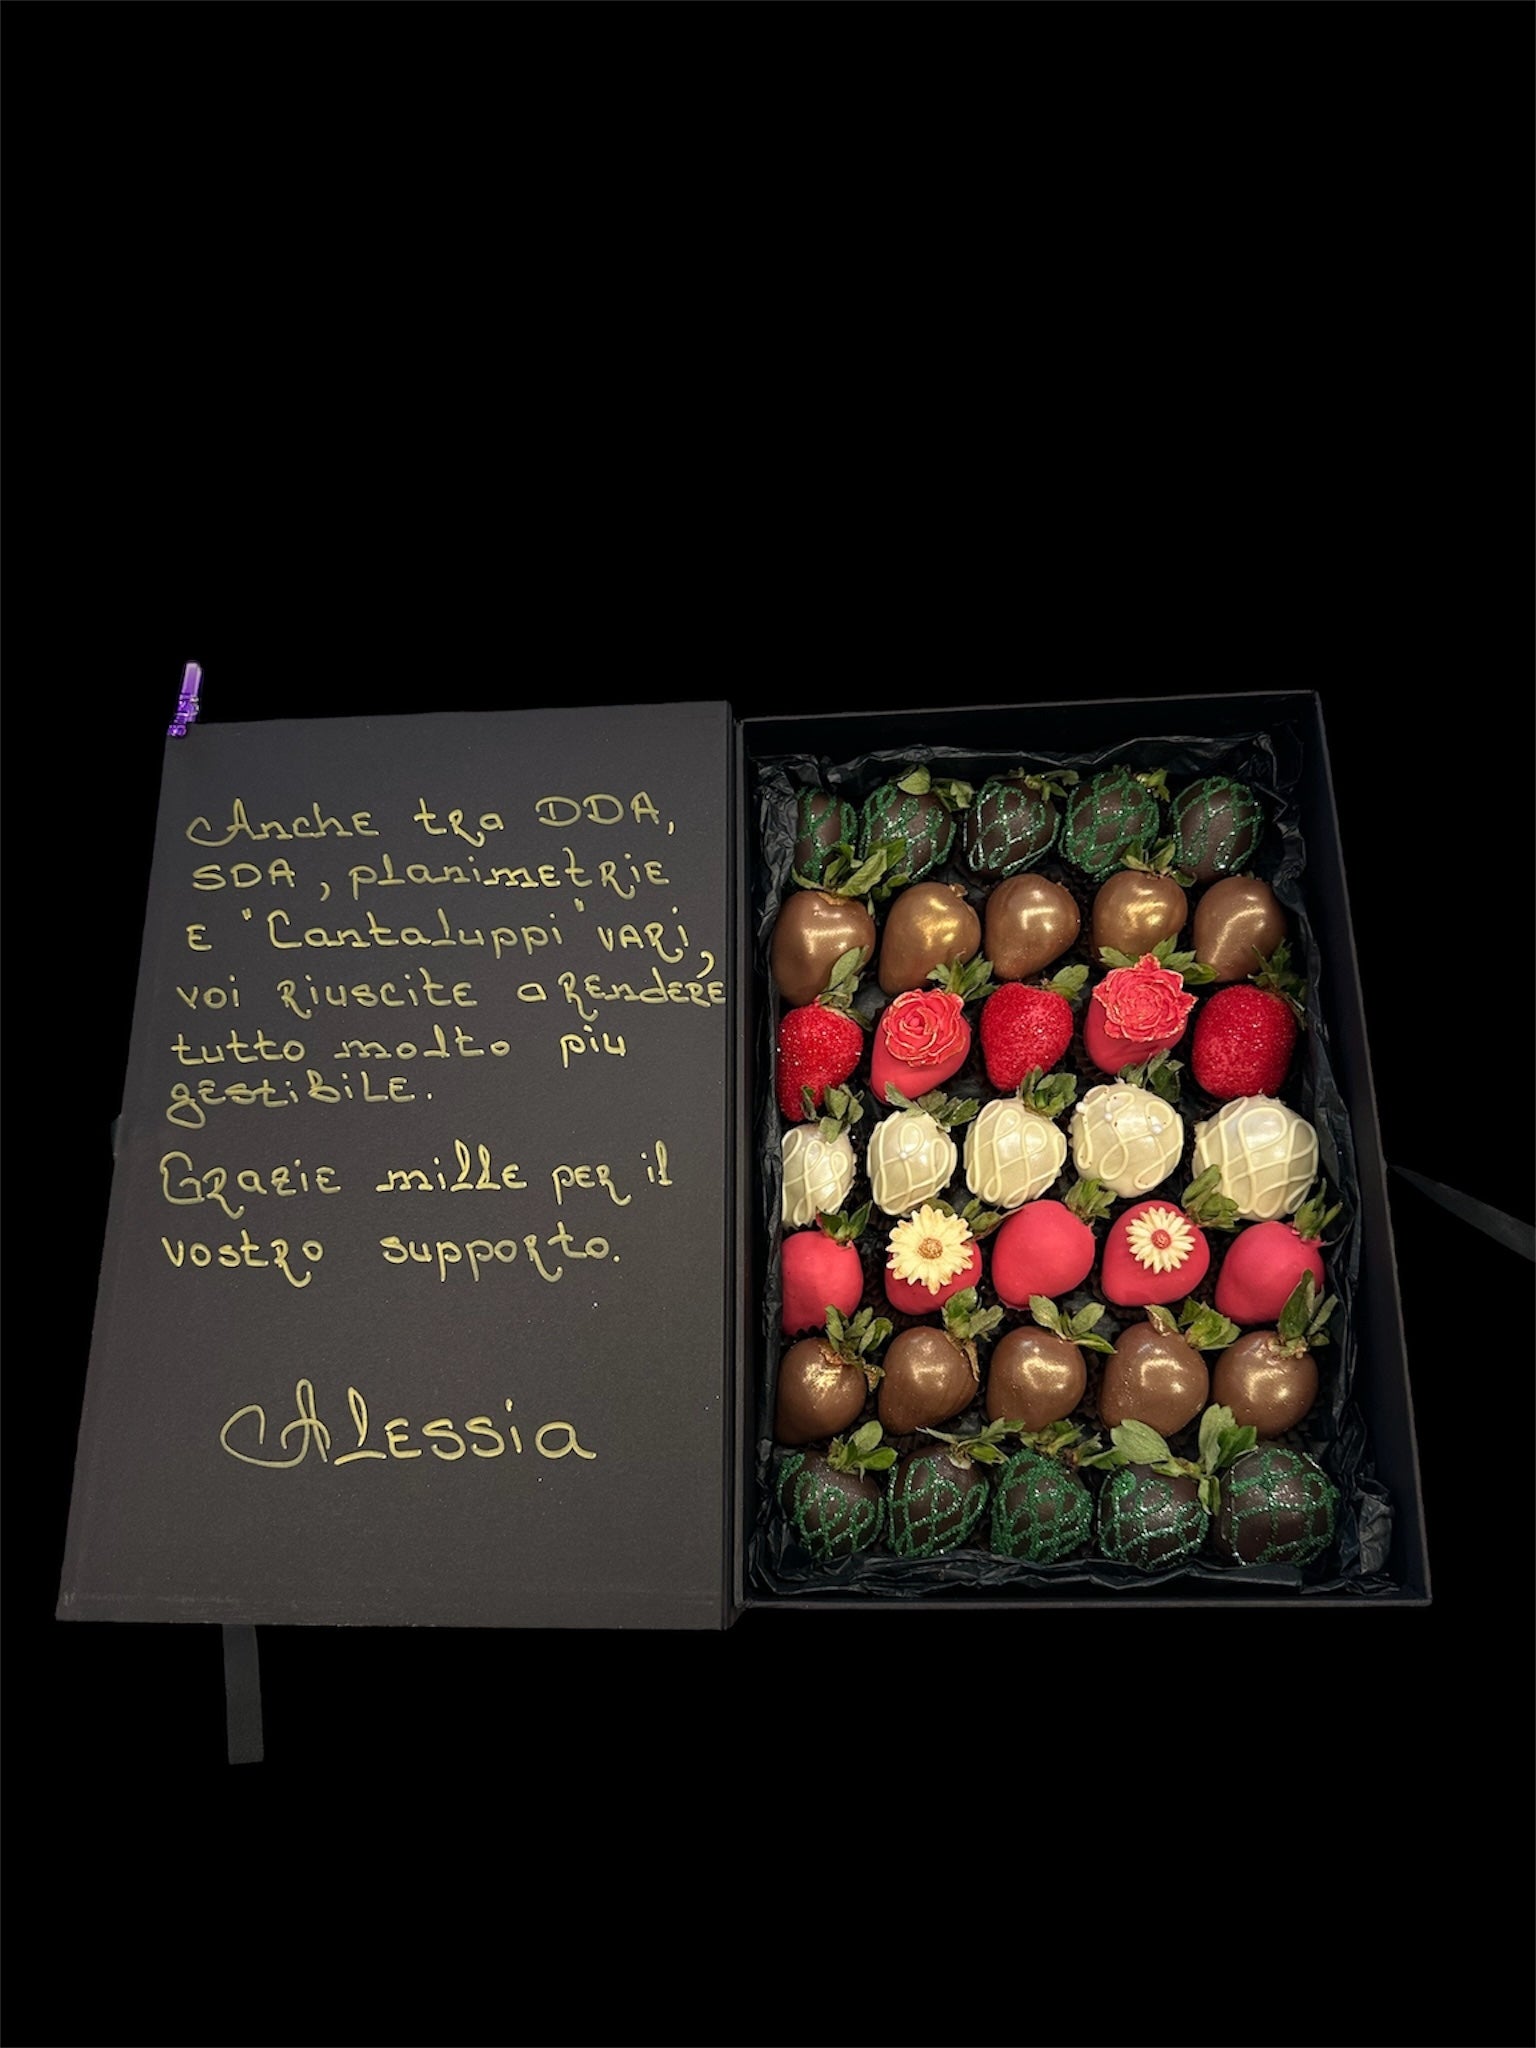 Anche tra DDA,
SDA, planimetrie
e "Cantaluppi" vari,
voi riuscite a rendere
tutto molto più
gestibile.
Grazie mille per il
vostro supporto.
Alessia